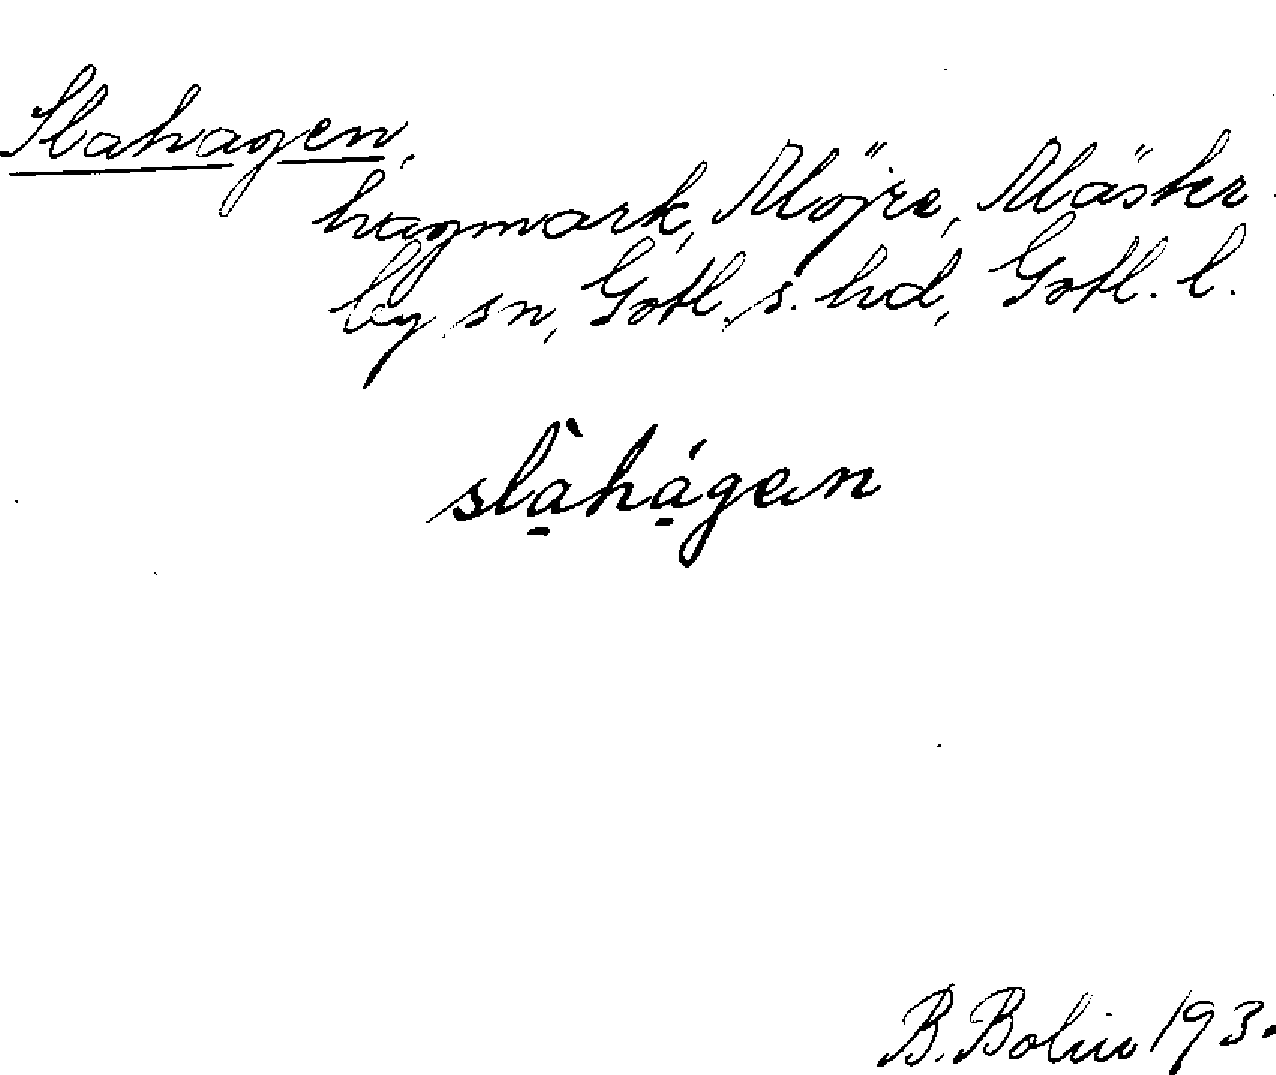 Slahagen,
hagmark, Möjre, Mäster
by sn, Gotl. s. hd, Gotl. l.
slàhágen
B. Bolin 193